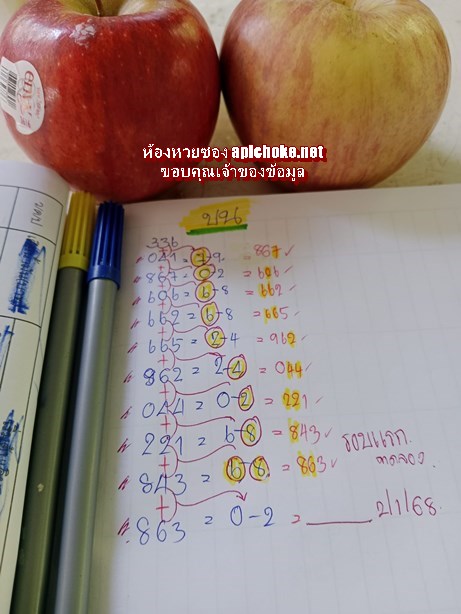 ห้องหวยซอง apichoke.net
ขอบคุณเจ้าของข้อมูล
บน
336
041 = 7-9 = 867 ✓
867 = 0-2 = 606 ✓
606 = 6-8 = 662 ✓
662 = 6-8 = 665 ✓
665 = 2-4 = 962 ✓
962 = 2-4 = 044 ✓
044 = 0-2 = 221 ✓
221 = 6-8 = 843 ✓
843 = 6-8 = 863 ✓
รอบแรก
ทดลอง
863 = 0-2 = ______ 2/1/68.